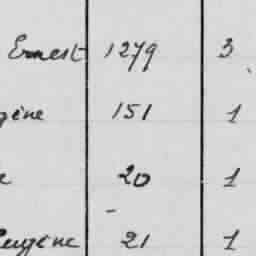 Ernest 1279 3
gène 151 1
e 20 1
Eugène 21 1